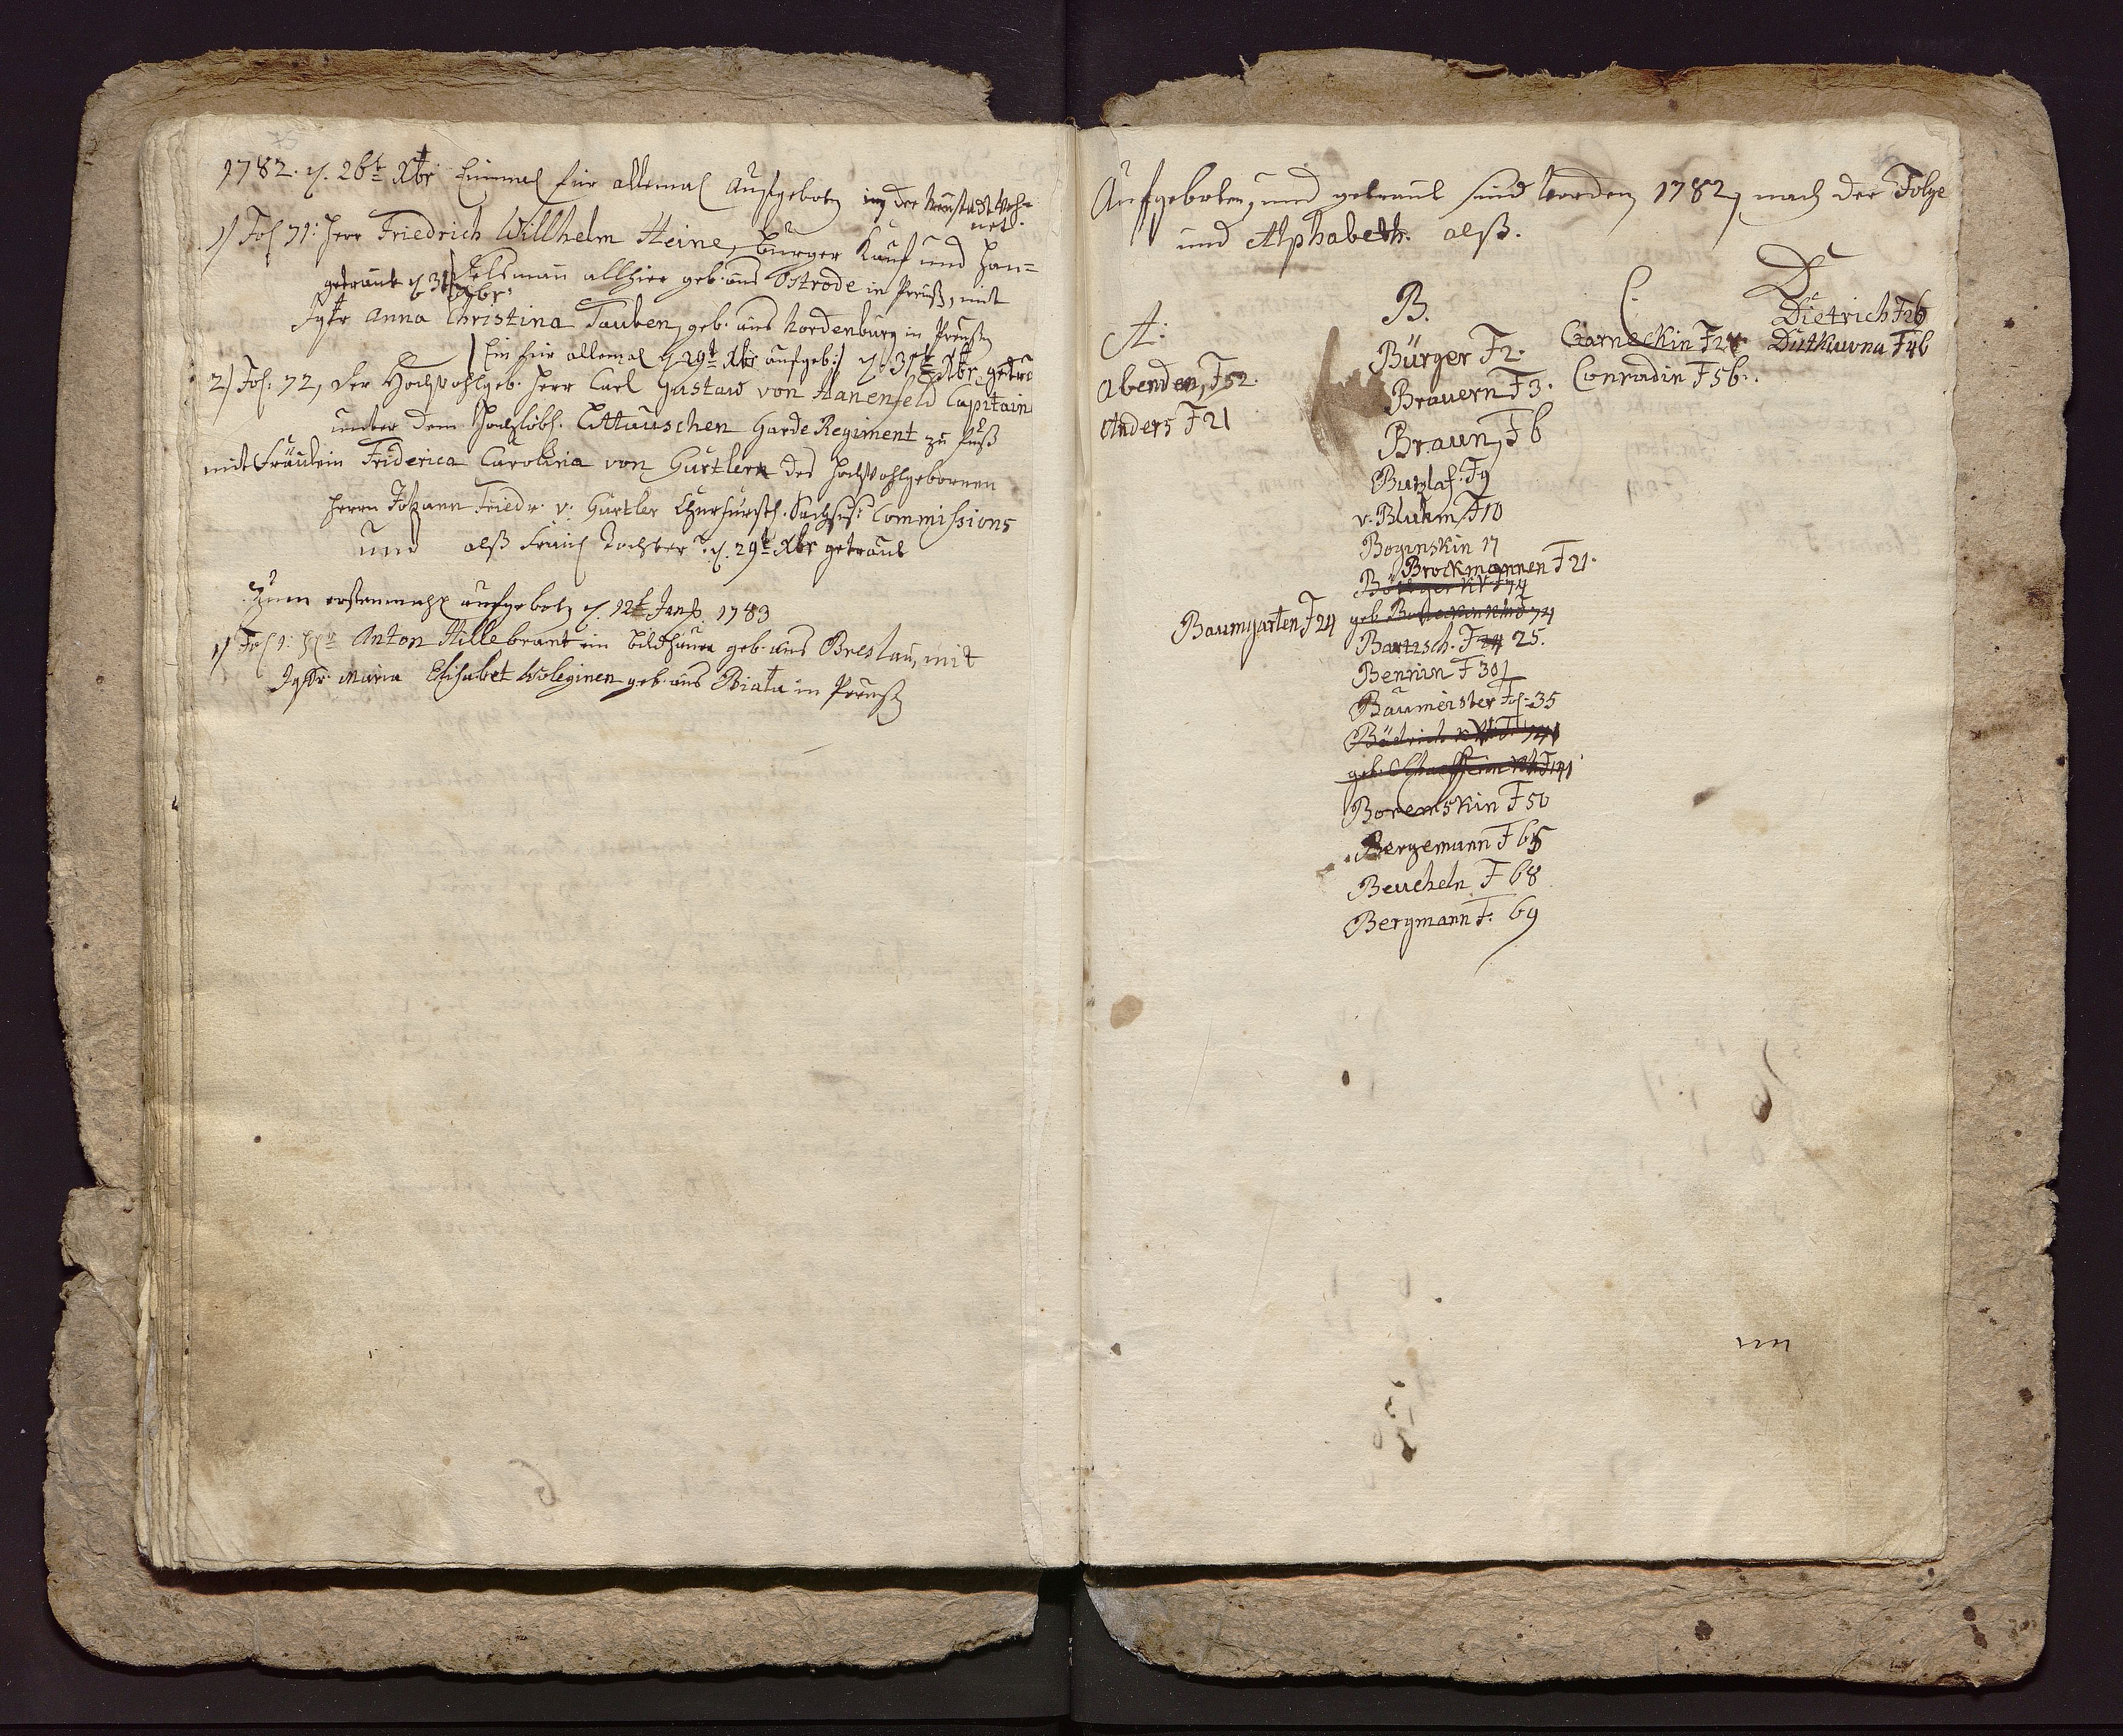 1782. d. 26t Xbr Einmal für allemal Aufgeboten in der Neustadt woh=
net.
1) Fol 71: Herr Friedrich Willhelm Heine, Bürger Kauf und Han=
delsmann allhier geb. aus Ostrode in Preuß, mit
getraut d 31 Xbr.
Jgfr Anna Christina Tauben, geb. aus Nordenburg in Preußen
Ein für allemal d 29t Xbr aufgeb: d. 31t Xbr. getra
2) Fol: 72, Der Hochwohlgeb. Herr Carl Gustaw von Hanenfeld Capitain
unter dem Hochlöbl. Littauschen Garde Regiment zu Fuß
mit Fräulein Friderica Carolina von Gurtlern des Hochwohlgebornen
Herrn Johann Friedr. v. Gurtler Churfürstl. Sächsis: Commissions
und als Tochter d. 29t Xbr getraut
Zum erstenmahl aufgeboten d. 12t Janr. 1783
1) Fol 1: Anton Hillebrant ein Bildhauer geb. aus Breslau, mit
Jgfr. Maria Elisabet Woleginen geb. aus Biala in Preußen
Aufgeboten, und getraut sind worden 1782, nach der Folge
und Alphabeth. alß.
A:
Abenden, F52.
Anders F21
B.
Bürger F2.
Brauern F3.
Braun, F6
Butzlaf. F9
v. Bluhm F10
Boginskin 17
Brockmannen F21.
Baumgarten F24
Bartzsch. F 25.
Bennin F 30
Baumeister Fol: 35
Boremskin F50
Bergemann F 65
Beucheln F 68
Bergmann F. 69
C.
Czarneckin F24
Conradin F56.
D
Dietrich F26
Dutkuwna F46